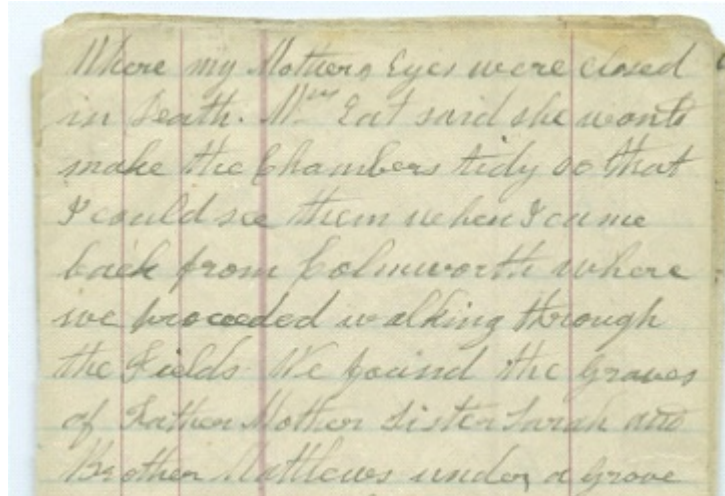 Where my Mothers Eyes were closed
in Death. Mrs Eat said she wont
make the Chambers tidy so that
I could see them when I came
back from Colmworth where
we proceeded walking through
the Fields We found the graves
of Father Mother Sister Sarah and
Brother Mathews under a grove